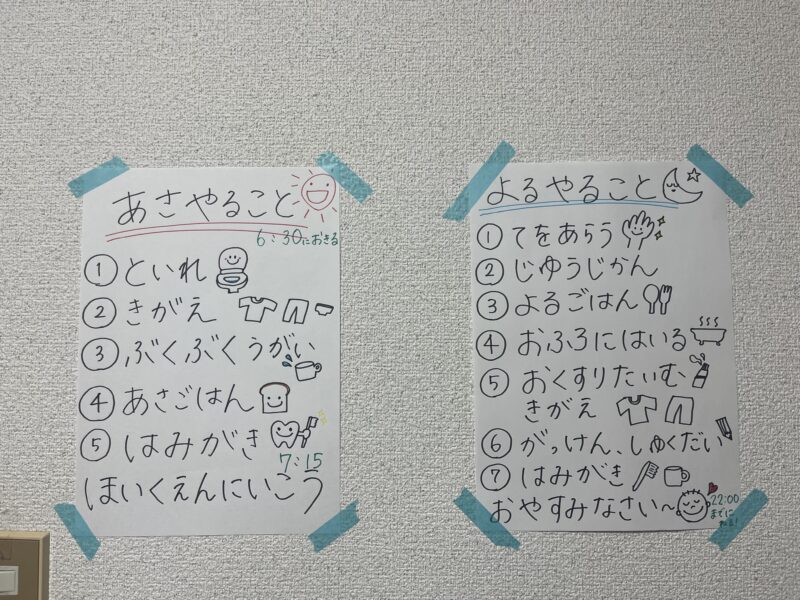 あさやること
6:30におきる
①といれ
②きがえ
③ぶくぶくうがい
④あさごはん
⑤はみがき
7:15
ほいくえんにいこう
よるやること
①てをあらう
②じゆうじかん
③よるごはん
④おふろにはいる
⑤おくすりたいむ
きがえ
⑥がっけん、しゅくだい
⑦はみがき
おやすみなさい〜
22:00
までに
ねる!